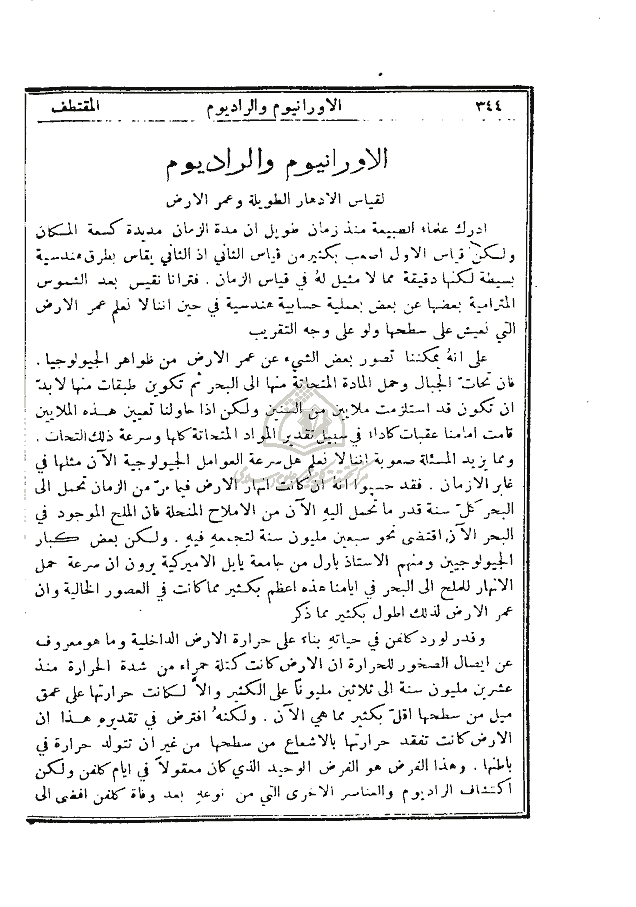 ٣٤٤ الاورانيوم والراديوم المقتطف
الاورانيوم والراديوم
لقياس الادهار الطويلة وعمر الارض
ادرك علماء الطبيعة منذ زمان طويل ان مدة الزمان مديدة كسعة المسكان
ولكنَّ قياس الاول اصعب بكثير من قياس الثاني اذ الثاني يقاس بطرق هندسية
بسيطة لكنها دقيقة مما لا مثيل لهُ في قياس الزمان . فترانا نقيس بعد الشموس
المترامية بعضها عن بعض بعملية حسابية هندسية في حين اننا لا نعلم عمر الارض
التي نعيش على سطحها ولو على وجه التقريب
على انهُ يمكننا تصور بعض الشيء عن عمر الارض من ظواهر الجيولوجيا .
فان نحاتّ الجبال وحمل المادة المتحاتة منها الى البحر ثم تكوين طبقات منها لا بدّ
ان تكون قد استلزمت ملايين من السنين ولكن اذا حاولنا تعيين هذه الملايين
قامت امامنا عقبات كاداء في سبيل تقدير المواد المتحاتة كلها وسرعة ذلك التحات .
ومما يزيد المسئلة صعوبة اننا لا نعلم هل سرعة العوامل الجيولوجية الآن مثلها في
غابر الازمان . فقد حسبوا انهُ ان كانت انهار الارض فيما مرّ من الزمان تحمل الى
البحر كلّ سنة قدر ما تحمل اليهِ الآن من الاملاح المنحلة فان الملح الموجود في
البحر الآن اقتضى نحو سبعين مليون سنة لتجمعهِ فيهِ . ولكن بعض كبار
الجيولوجيين ومنهم الاستاذ بارل من جامعة يايل الاميركية يرون ان سرعة حمل
الانهار للملح الى البحر في ايامنا هذه اعظم بكثير مما كانت في العصور الخالية وان
عمر الارض لذلك اطول بكثير مما ذكر
وقدر لورد كلفن في حياتهِ بناء على حرارة الارض الداخلية وما هو معروف
عن ايصال الصخور للحرارة ان الارض كانت كتلة حمراء من شدة الحرارة منذ
عشرين مليون سنة الى ثلاثين مليوناً على الكثير والاَّ لكانت حرارتها على عمق
ميل من سطحها اقلّ بكثير مما هي الآن . ولكنهُ افترض في تقديرهِ هذا ان
الارض كانت تفقد حرارتها بالاشعاع من سطحها من غير ان تتولد حرارة في
باطنها . وهذا الفرض هو الفرض الوحيد الذي كان معقولاً في ايام كلفن ولكن
اكتشاف الراديوم والعناصر الاخرى التي من نوعهِ بعد وفاة كلفن افضى الى